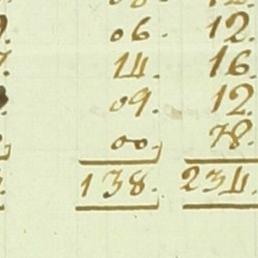 06. 12.
14. 16.
09. 12
00. 78.
138. 234.